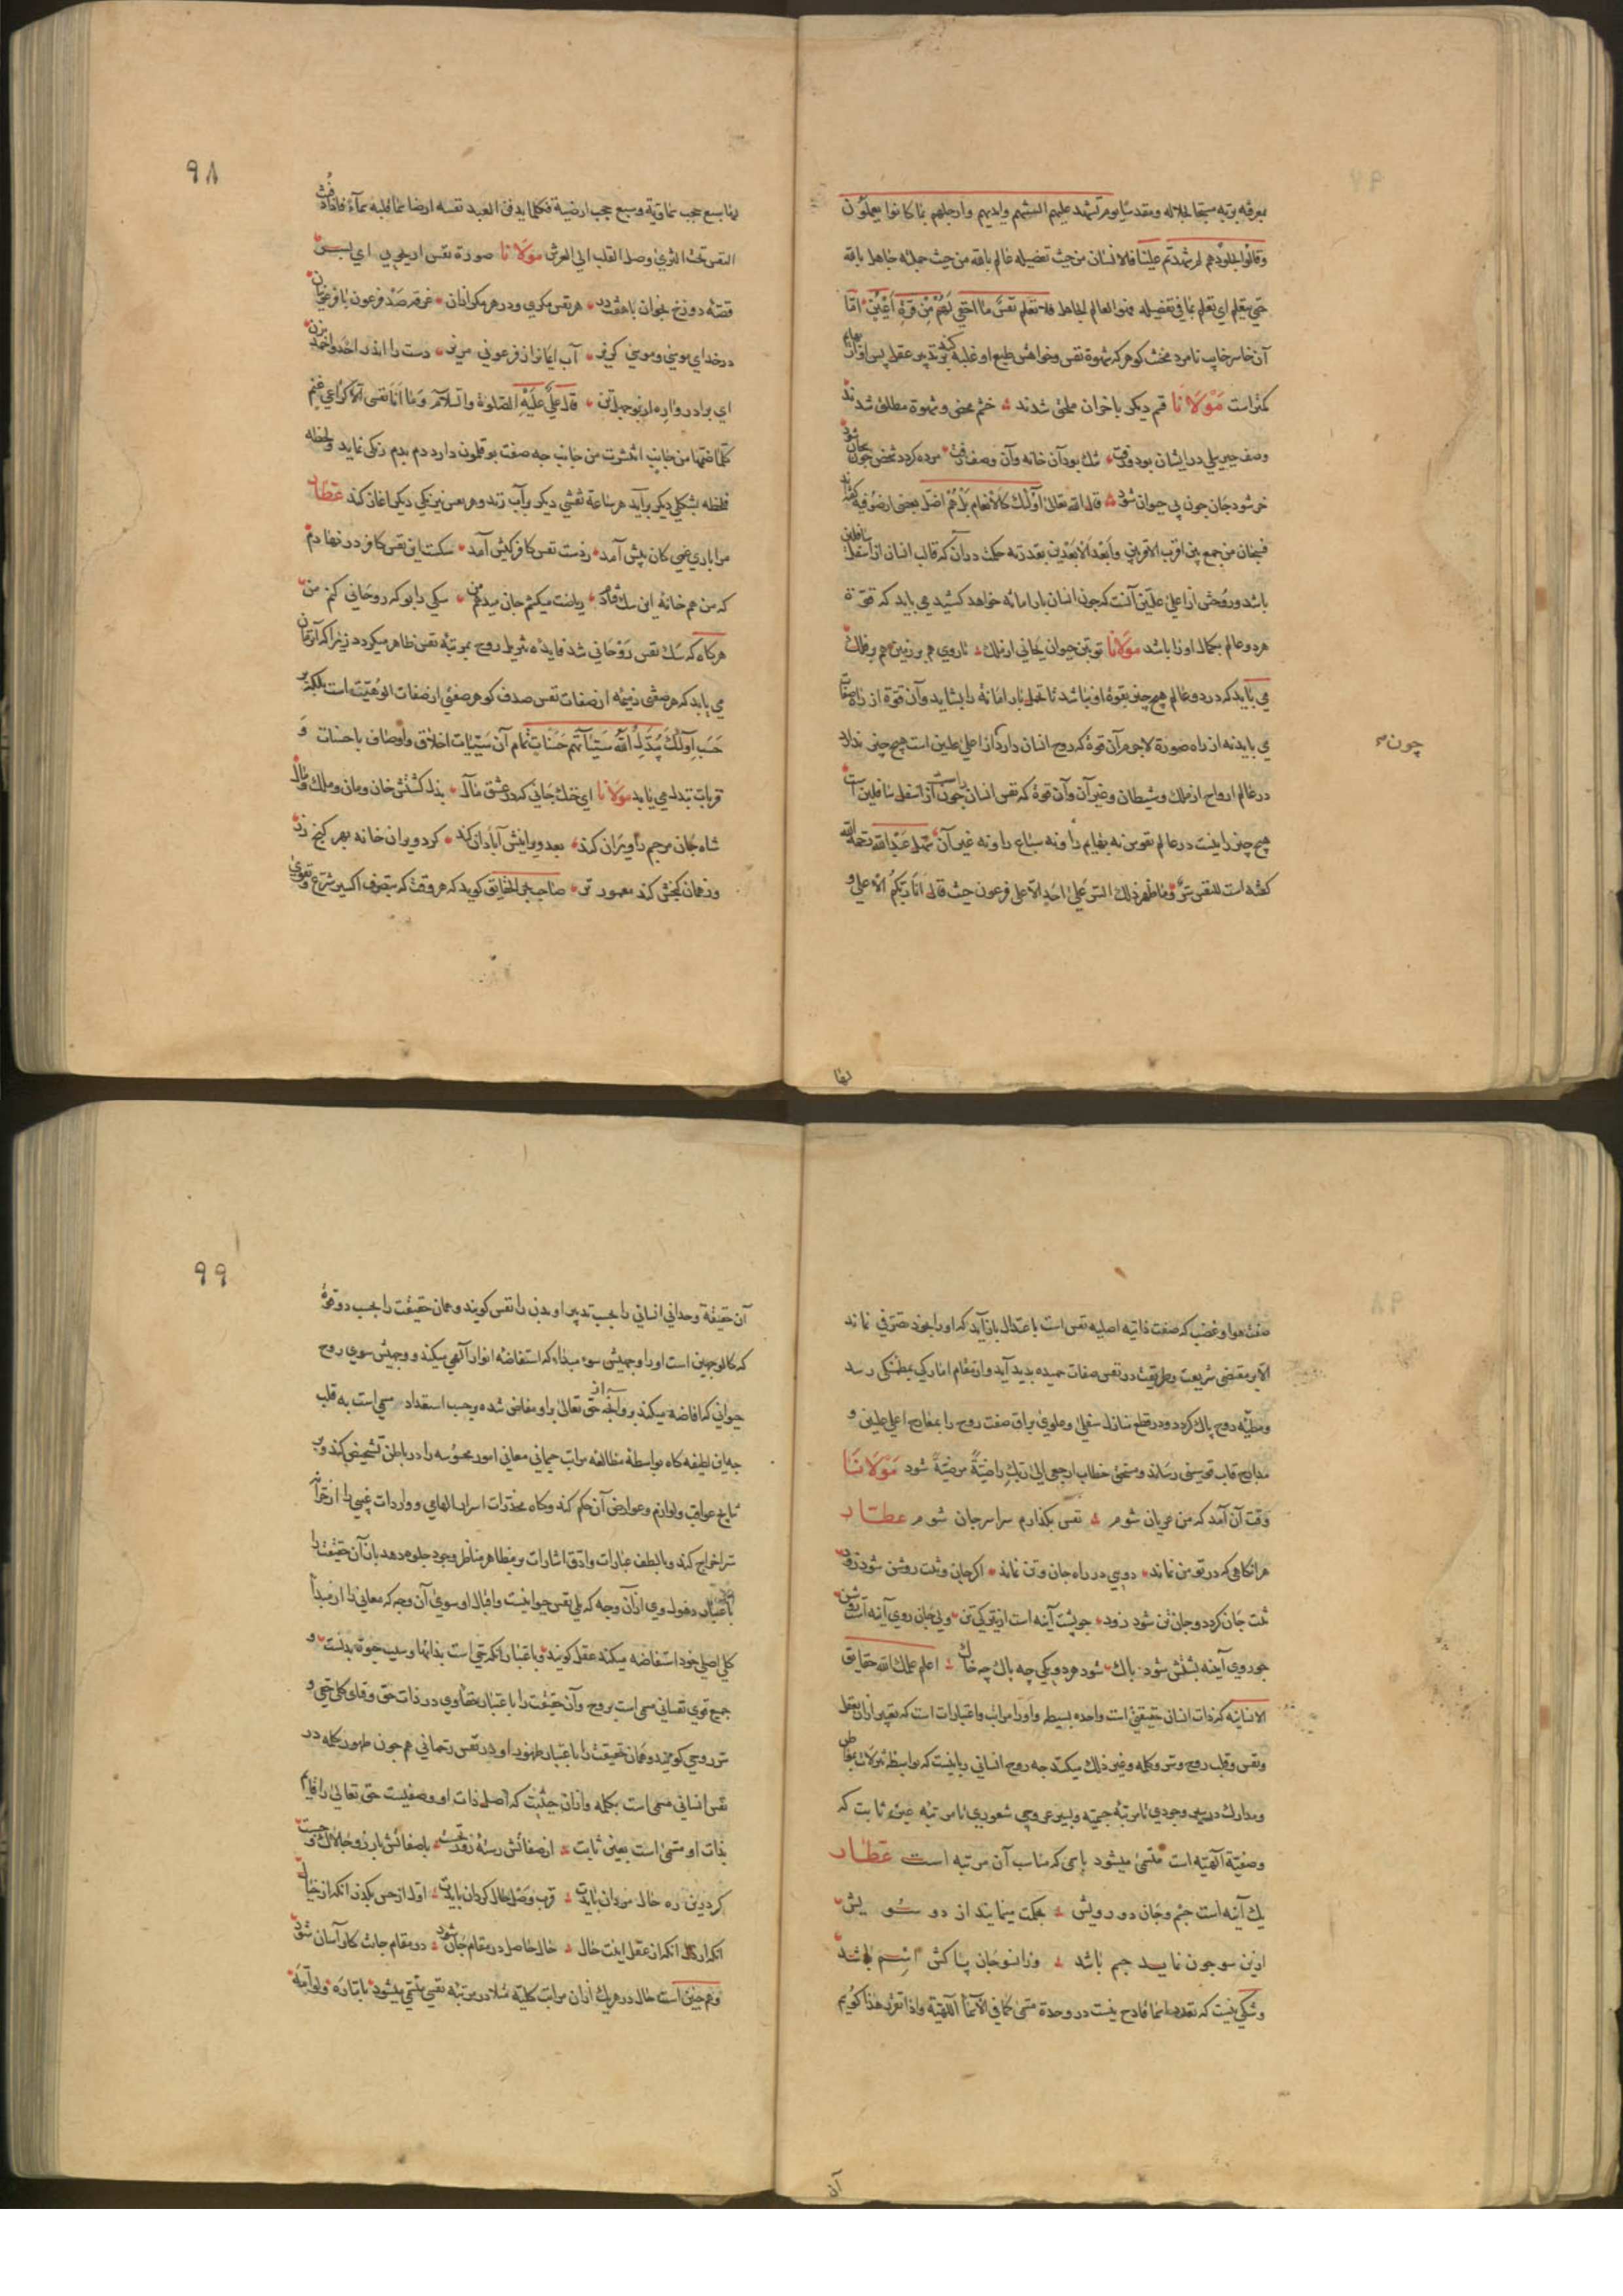 معرفه بربه سبحانه بجلاله ومقدسا يوم تشهد عليهم السنتهم وايديهم وارجلهم بما كانوا يعملون
وقالوا لجلودهم لم شهدتم علينا فالانسان من حيث تفصيله عالم بالله من حيث جملته جاهل بالله
حتي يتعلم اي تعلم بما في تفصيله فهو العالم الجاهل فلا تعلم نفس ما اخفي لهم من قرة اعين امّا
آن خاسر خايب نامرد مخنث كو هركه شهوة نفس وخواهش طبع او غلبه كند بر تدبير عقل پس او از بهايم
كمتر است مَوْلَانَا قسم ديكر باخران ملحق شدند خشم محض وشهوة مطلق شدند
وصف جبريلي در ايشان بود ورفت تنك بود آن خانه وآن وصف زفت مرده كردد شخص چون بيجان شود
خر شود جان چون بي حيوان شود قال الله تعالى اولئك كالانعام بل هم اضل بعضى از صوفيه كفته‌اند
فسبحان من جمع بين اقرب الاقربين وابعد الابعدين بقدرته حكمت در آن كه قالب انسان از اسفل سافلين
باشد وروحش از اعلى علّيين آنست كه چون انسان بار امانه خواهد كشيد مي بايد كه قوّة
هردو عالم بكمال اورا باشد مَوْلَانَا تو بتن حيوان بجاني از ملك تا روي هم بر زمين هم بر فلك
مي بايد كه در دو عالم هيچ چيز بقوة او نباشد تا تحمل بار امانة را بشايد وآن قوة از راه صفات
مي بايد نه از راه صورة لاجرم آن قوة كه روح انسان دارد كه از اعلى عليين است هيچ چيز ندارد
چون
در عالم ارواح از ملك وشيطان وغير آن وآن قوة كه نفس انسان راست چون از اسفل سافلين است
هيچ چيز را نيست در عالم نفوس نه بهايم را ونه سباع را ونه غير آن سهل عبدالله رحمه الله
كفته است للنفس سرّ وما ظهر ذلك السر على احدٍ الّا على فرعون حيث قال انا ربكم الاعلى و
لها
٩٨
لها سبع حجب سماوية وسبع حجب ارضية فكلما يدفن العبد نفسه ارضا سما قلبه سماءً فاذا دفنت
النفس تحت الثرى وصل القلب الى العرش مَوْلَانَا صورة نفس ار بجويي اي پسر
قصّه دوزخ بخوان با هفت در هر نفس مكري ودر هر مكر ازان غرقه صد فرعون با فرعونيان
در خداي موسي وموسي كريز آب ايمانرا ز فرعوني مريز دست را اندر احد واحمد بزن
اي برادر واره از بوجهل تن قال علي عليه الصلوة والسّلام وما انا نفسي الا كراعي غنم
كلما ضمها من جانب انتشرت من جانب چه صفت بوقلمون دارد دم بدم رنكي نمايد ولحظه
فلحظه بشكلي ديكر برآيد هر ساعة نقشي ديكر بر آب زند وهر نفس نيرنكي ديكر اغاز كند عَطّار
مرا باري غمي كان پيش آمد ز دست نفس كافر كيش آمد سكست اين نفس كافر در نهادم
كه من هم خانهٔ اين سك بزادم رياضت ميكشم جان ميدهم من سكي را بو كه روحاني كنم من
هركاه كه سك نفس روحاني شد فايده شريط روح بمرتبهٔ نفس ظاهر ميكردد زيرا كه آنزمان
مي بايد كه هر صفتى ذميمه از صفات نفس صدف كوهر صفتي از صفات الوهيت است بلكه بر
حسب اولئك يبدّل الله سيّئاتهم حسنات تمام آن سيّئات اخلاق واوصاف باحسنات و
قربات تبدل مي يابد مَوْلَانَا اي خنك جاني كه در عشق مآل بذل كشتش خان ومان وملك ومال
شاه جان مر جسم را ويران كند بعد ويرانيش آبادان كند كرد ويران خانه بهر كنج زر
وز همان كنجش كند معمور تر صاحب بحر الحقايق كويد كه هر وقت كه بتصرف اكسير شرع وتقوى
صفت هوا وغضب كه صفت ذاتيه اصليه نفس است باعتدال باز آيد كه اورا بخود تصرفي نماند
الّا بمقتضى شريعت وطريقت در نفس صفات حميده پديد آيد واز مقام اماركي بمطمئنكي رسد
ومطيّه روح پاك كردد ودر قطع منازل سفلى وعلوى براق صفت روح را بمعارج اعلى عليين و
مدارج قاب قوسين رساند ومستحق خطاب ارجعي الى ربك راضيةً مرضيةً شود مَوْلَانَا
وقت آن آمد كه من عريان شوم نفس بكذارم سراسر جان شوم عطّار
هر انكاهى كه در تو من نماند دويي در راه جان وتن نماند اكر جان وتنت روشن شود زود
تنت جان كردد وجان تن شود زود چو پشت آينه است از تيركي تن ولي جان روي آينه است روشن
چو روي آينه پشتش شود پاك شود هر دو يكي چه پاك چه خاك اعلم علمك الله حقايق
الانسانيه كه ذات انسان حقيقتي است واحده بسيطه واورا مراتب واعتبارات است كه تعبير ازان بعقل
ونفس وقلب وروح وسر وكلمه وغير ذلك ميكند چه روح انساني ربانيست كه بواسطه تنزلات بمواطن
ومدارك در سير وجودي تا مرتبه جسميه وبسير عروجي شعوري تا مرتبه عين ثابت كه
وصفيّة الهيّه است متسمّى ميشود باسمى كه مناسب آن مرتبه است عَطّار
يك آينه است جسم وجان دو رويش بحكمت مينمايند از دو سويش
ازين سو چون نمايد جسم باشد وزانسو جان پاكش اسم باشد
وشكي نيست كه تعدد اسما قادح نيست در وحدة مسمى كما في الاسماء الالهية واذا تقرر هذا كوييم
آن
٩٩
آن حقيقة وحداني انساني را بحسب تدبير او بدن را نفس كويند وهمان حقيقت را بحسب دو قوة
كه كالوجهين است اورا وجهيش سوي مبداء كه استفاضهٔ انوار الهي ميكند ووجهيش سوي روح
حيواني كه افاضه ميكند برو آنچه از حق تعالى براو مفاض شده بحسب استعداد مسمي است به قلب
چه اين لطيفه كاه بواسطهٔ مطالعه مراتب جسماني معاني امور محسوسه را در باطن تشخيص كند وبر
نتايج عواقب ولوازم وعوارض آن حكم كند وكاه مخدرات اسرار الهامي وواردات غيبي را از
سر اخراج كند وبالطف عبارات وادق اشارات بر مظاهر مناظر وجود جلوه دهد باز آن حقيقت را
باعتبار ذهول وي ازان وجه كه يلي نفس حيوانيست واقبال او سوي آن وجه كه معاني را از مبدأ
كلي اصلي خود استفاضه ميكند عقل كويند وباعتبار انكه حي است بذاتها وسبب حيوة بدنست و
جميع قوي نفساني مسمى است بروح وآن حقيقت را باعتبار خفاء وي در ذات حق وقواي كلي حي و
سر روحي كويند وهمان حقيقت را باعتبار ظهور او در نفس رحماني هم چون ظهور كلمه در
نفس انساني مسمى است بكلمه وازان حيثيت كه اصل ذات او وصفيست حق تعالى را قايم
بذات او متسمى است بعين ثابت
كردين ره حال مردان بايدت قرب وصل حال كردان بايدت اول از حس بكذر انكه از خيال
انكه از دل انكه از عقل اينت حال حال حاصل در مقام جان شود در مقام جانت كار آسان شود
وهم چنين است حال در هريك ازان مراتب كليه مثلا در مرتبه نفس متسمّى ميشود باماره ولوامه